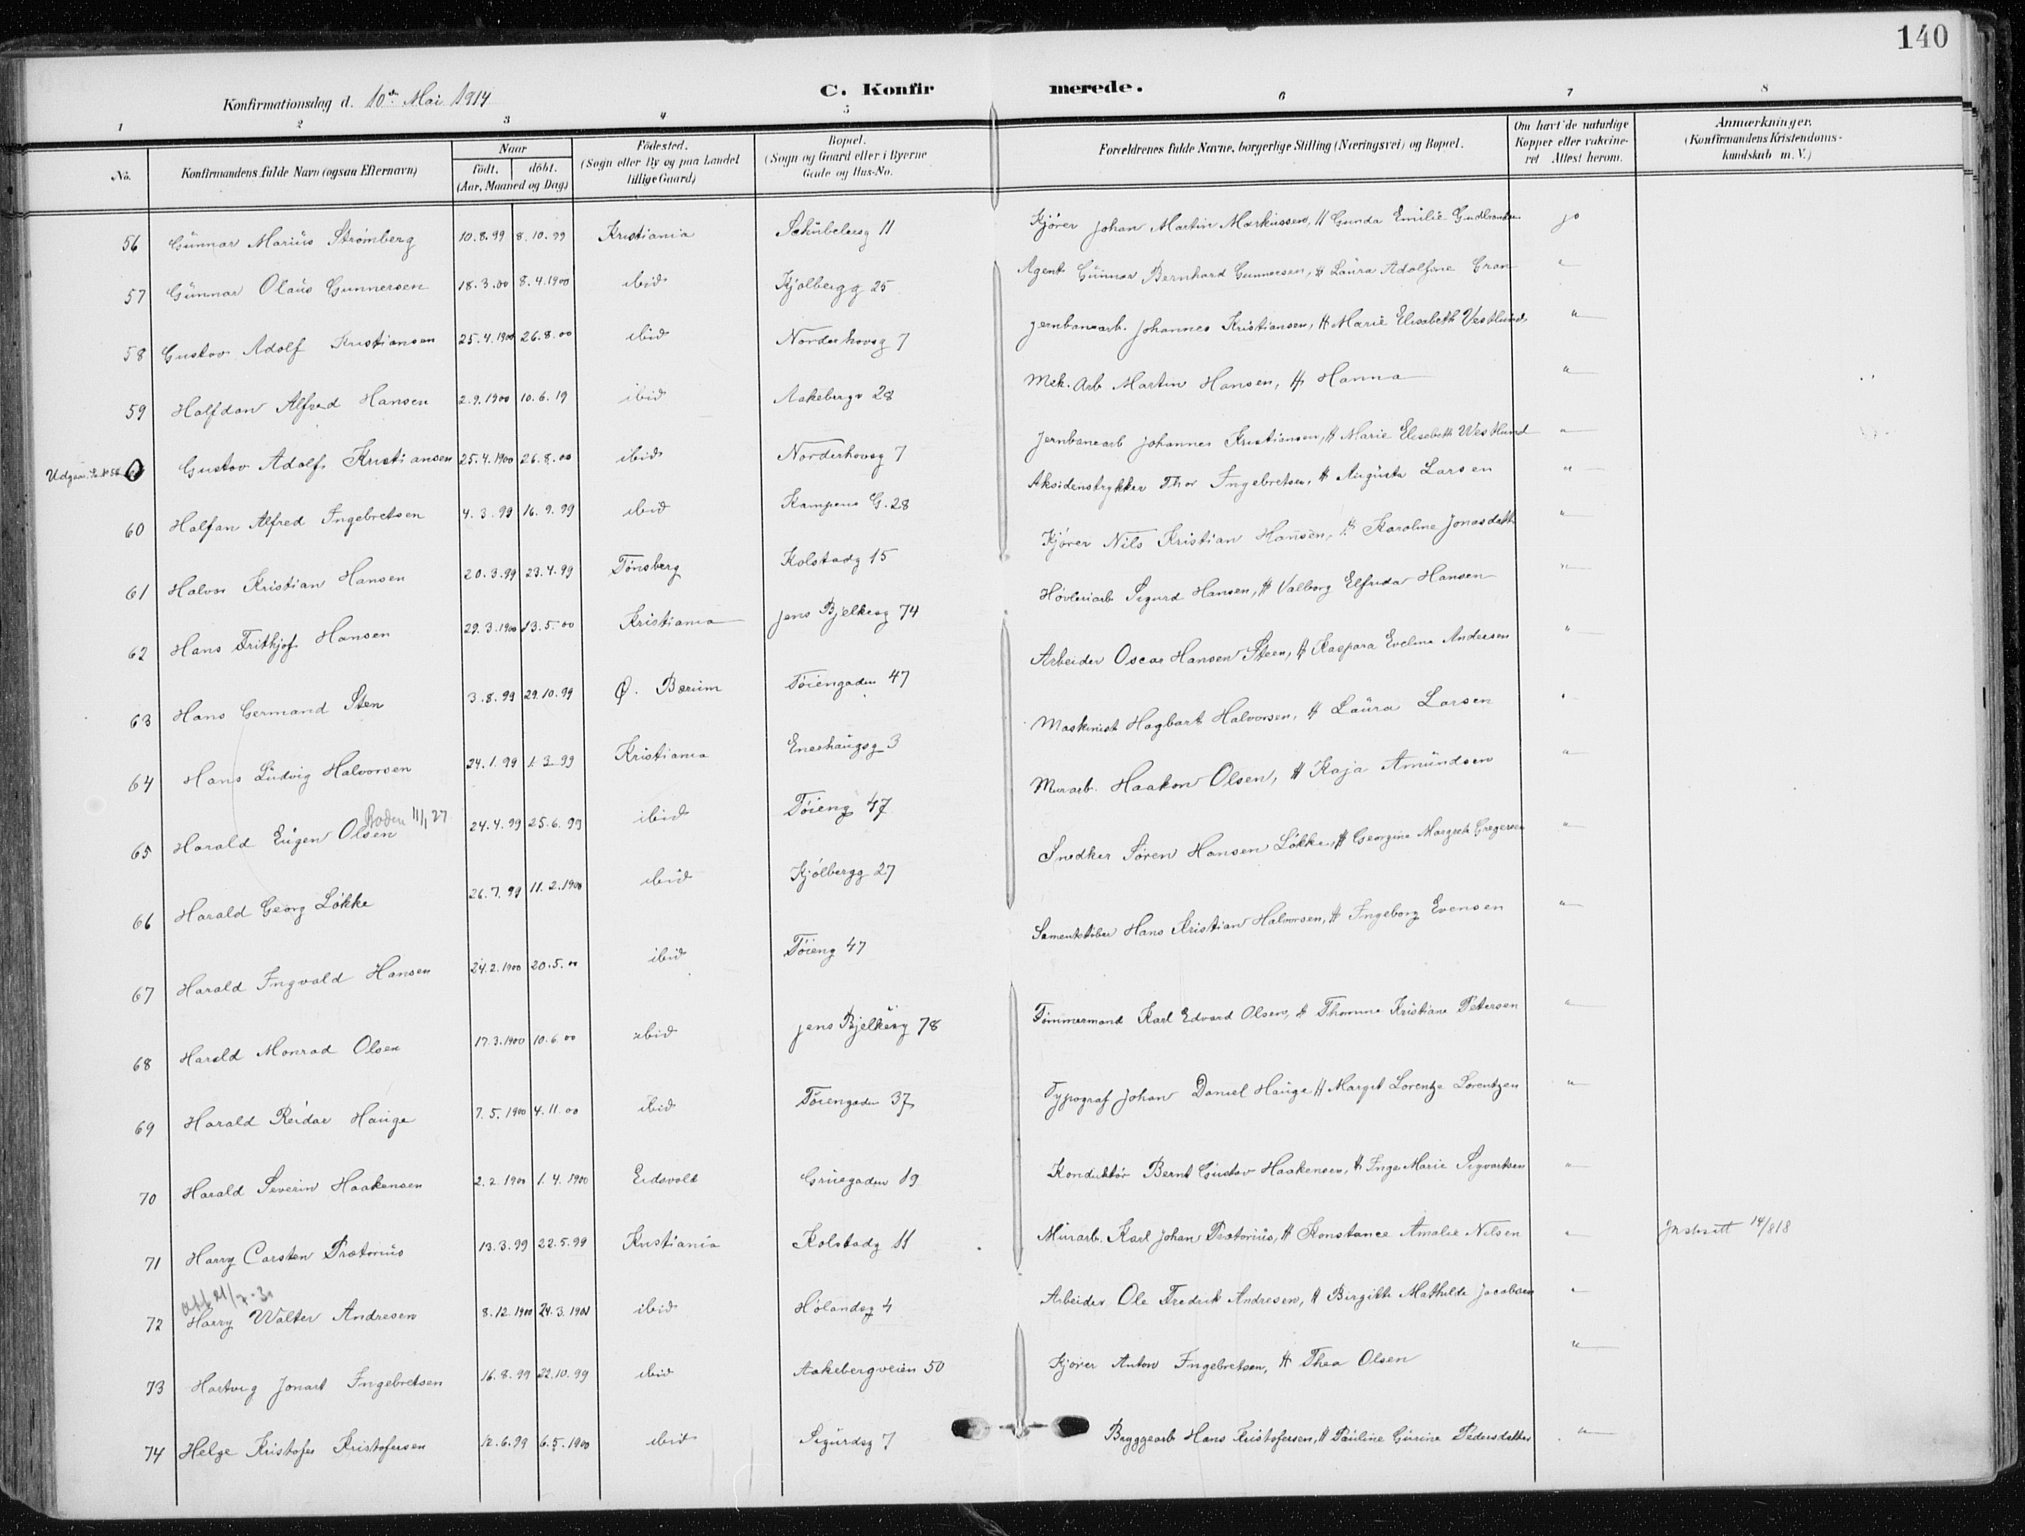 140
Konfirmationsdag d. 10de Mai 1914
C. Konfirmerede.
1 2 3 4 5 6 7 8
No. Konfirmandens fulde Navn (ogsaa Efternavn) Naar født, døbt. (Aar, Maaned og Dag) Fødested. (Sogn eller By og paa Landet tillige Gaard) Bopæl. (Sogn og Gaard eller i Byerne Gade og Hus-No. Forældrenes fulde Navne, borgerlige Stilling (Næringsvei) og Bopæl. Om havt de naturlige Kopper eller vakcineret Attest herom. Anmærkninger. (Konfirmandens Kristendomskundskab m. V.)
56 Gunnar Marius Strømberg 10.8.99 8.10.99 Kristiania Schübelersg 11 Kjører Johan Martin Markussen, H Gunda Emilie Gudbrandsen jo
57 Gunnar Olaus Gunnersen 18.3.00 8.4.1900 ibid Kjølbergg 25 Agent Gunnar Bernhard Gunnersen, H Laura Adolfine Gran "
58 Gustav Adolf Kristiansen 25.4.1900 26.8.00 ibid Norderhovsg 7 Jernbanearb. Johannes Kristiansen, H Marie Elisabeth Vestlund "
59 Halfdan Alfred Hansen 2.9.1900 10.6.19 ibid Aakebergv 28 Mek. Arb. Martin Hansen, H Hanna "
Udgaar. se N 58 Gustav Adolf Kristiansen 25.4.1900 26.8.00 ibid Norderhovsg 7 Jernbanearb Johannes Kristiansen, H Marie Elisabeth Westlund "
60 Halfan Alfred Ingebretsen 4.3.99 16.9.99 ibid Kampens G. 28 Aksidenstrykker Thor Ingebretsen, H Augusta Larsen "
61 Halvor Kristian Hansen 20.3.99 23.4.99 Tønsberg Kolstadg 15 Kjører Nils Kristian Hansen, H Karoline Jonasdatt "
62 Hans Frithjof Hansen 29.3.1900 13.5.00 Kristiania Jens Bjelkesg 74 Høvleriarb Sigurd Hansen, H Valborg Elfrida Hansen "
63 Hans Germand Sten 3.8.99 29.10.99 Ø. Bærum Tøiengaden 47 Arbeider Oscar Hansen Steen, H Kaspara Eveline Andersen "
64 Hans Ludvig Halvorsen 24.1.99 1.3.99 Kristiania Enerhaugsg 3 Maskinist Hagbart Halvorsen, H Laura Larsen "
65 Harald Eugen Olsen 24.4.99 25.6.99 ibid Tøieng 47 Murarb. Haakon Olsen, H Kaja Amundsen "
66 Harald Georg Løkke 26.7.99 11.2.1900 ibid Kjølbergg 27 Snedker Søren Hansen Løkke, H Georgine Margrete Gregersen "
67 Harald Ingvald Hansen 24.2.1900 20.5.00 ibid Tøieng 47 Sementstøber Hans Kristian Halvorsen, H Ingeborg Evensen "
68 Harald Monrad Olsen 17.3.1900 10.6.00 ibid Jens Bjelkesg 78 Tømmermand Karl Edvard Olsen, H Thomine Kristiane Petersen "
69 Harald Reidar Hauge 7.5.1900 4.11.00 ibid Tøiengaden 37 Typograf Johan Daniel Hauge H Margit Lorentze Lorentzen "
70 Harald Severin Haakensen 2.2.1900 1.4.1900 Eidsvold Grüegaden 19 Konduktør Bernt Gustav Haakensen, H Inge Marie Sigvartsen "
71 Harry Carsten Prætorius 13.3.99 22.5.99 Kristiania Kolstadg 11 Murarb. Karl Johan Prætorius, H Konstance Amalie Nilsen " 14/8 18
72 Harry Walter Andresen 8.12.1900 24.3.1901 ibid Hølandsg 4 Arbeider Ole Fredrik Andresen, H Birgitte Mathilde Jacobsen "
73 Hartvig Jonart Ingebretsen 16.8.99 22.10.99 ibid Aakebergveien 50 Kjører Anton Ingebretsen, H Thea Olsen "
74 Helge Kristofer Kristofersen 12.6.99 6.5.1900 ibid Sigurdsg 7 Bryggearb Hans Kristofersen, H Pauline Gurine Pedersdatter "